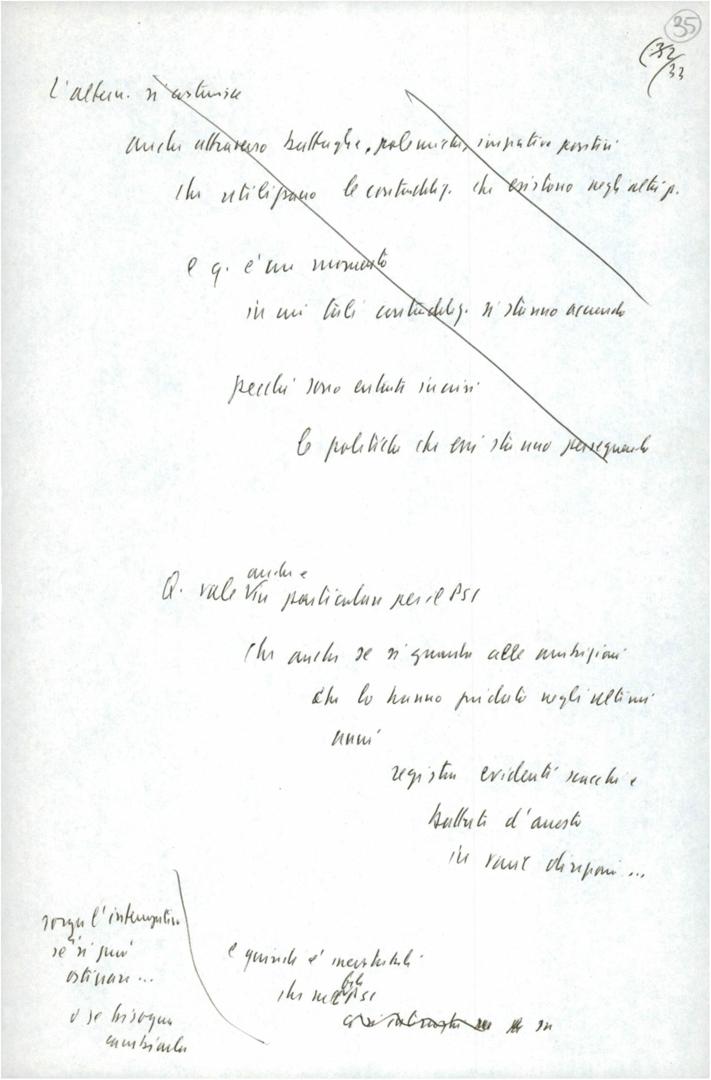 35
(32/33
L'altern. si costruisce
anche attraverso battaglie, polemiche, iniziative positive
che utilizzano le contraddiz. che esistono negli altri p.
e q. è un momento
in cui tali contraddiz. si stanno acuendo
perché sono entrate in crisi
le politiche che essi stanno perseguendo
Q. vale anche e
in particolare per il PSI
che anche se si guarda alle ambizioni
che lo hanno guidato negli ultimi
anni
registra evidenti scacchi e
battute d'arresto
in varie direzioni ...
sorge l'interrogativo
se si può
ostinare ...
o se bisogna
cambiarla
e quindi è inevitabile
che nel PSI